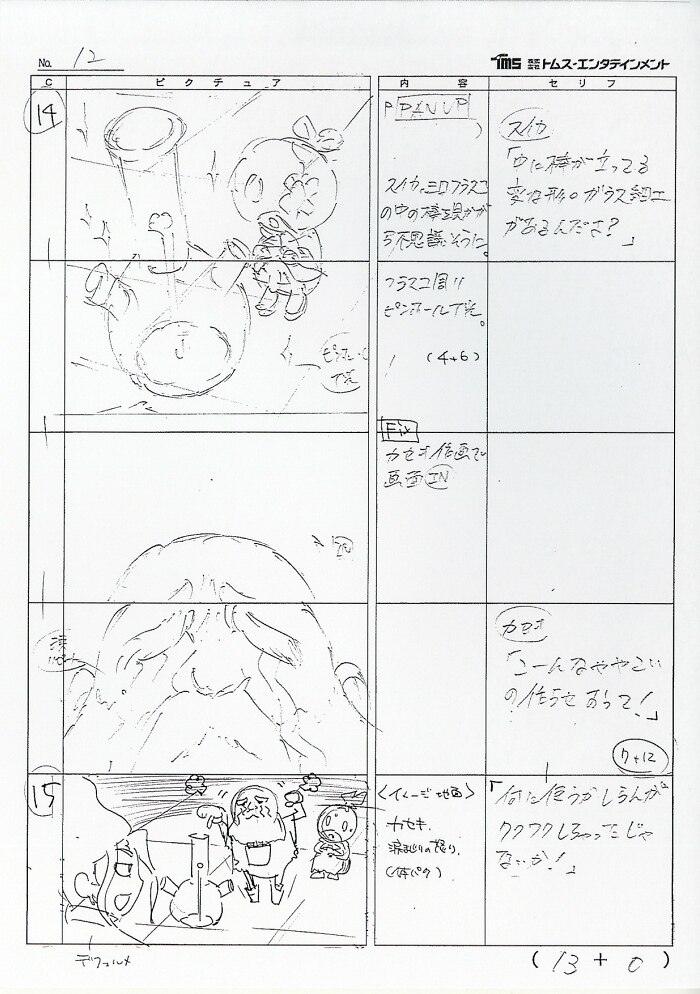 No. 12
TMS 株式会社 トムス・エンタテインメント
C ピクチュア 内容 セリフ
14
P PAN UP
スイカ、三口フラスコ
の中の棒を
不思議そうに。
スイカ
「中に棒が立ってる
変な形のガラス細工
があるんだよ?」
フラスコ周り
ピンホールT光。
(4+6)
ピンホール
T光
Fix
カセキ作画で
画面 IN
涙
カセキ
「こーんなややこい
の作らせおって!」
7+12
15
<イメージ地面>
カセキ、
涙まじりの怒り、
(体パク)
「何に使うかしらんが
ワクワクしちゃったじゃ
ないか!」
デフォルメ
(13 + 0)